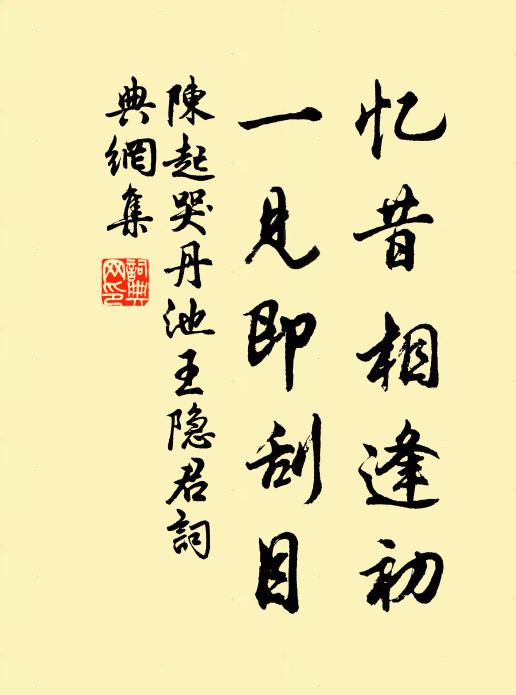 忆昔相逢初
一见即刮目
陳起哭丹池王隐君詞
典網集
詞典網印